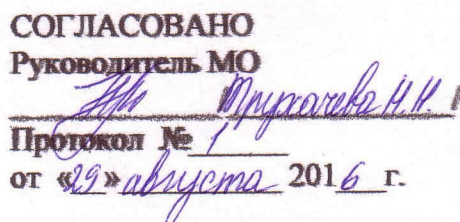 СОГЛАСОВАНО
Руководитель МО
Трухачева Н.Н.
Протокол № 1
от «29» августа 2016 г.